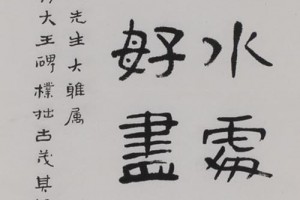 水處
好盡
先生大雅属
大王碑樸拙古茂其